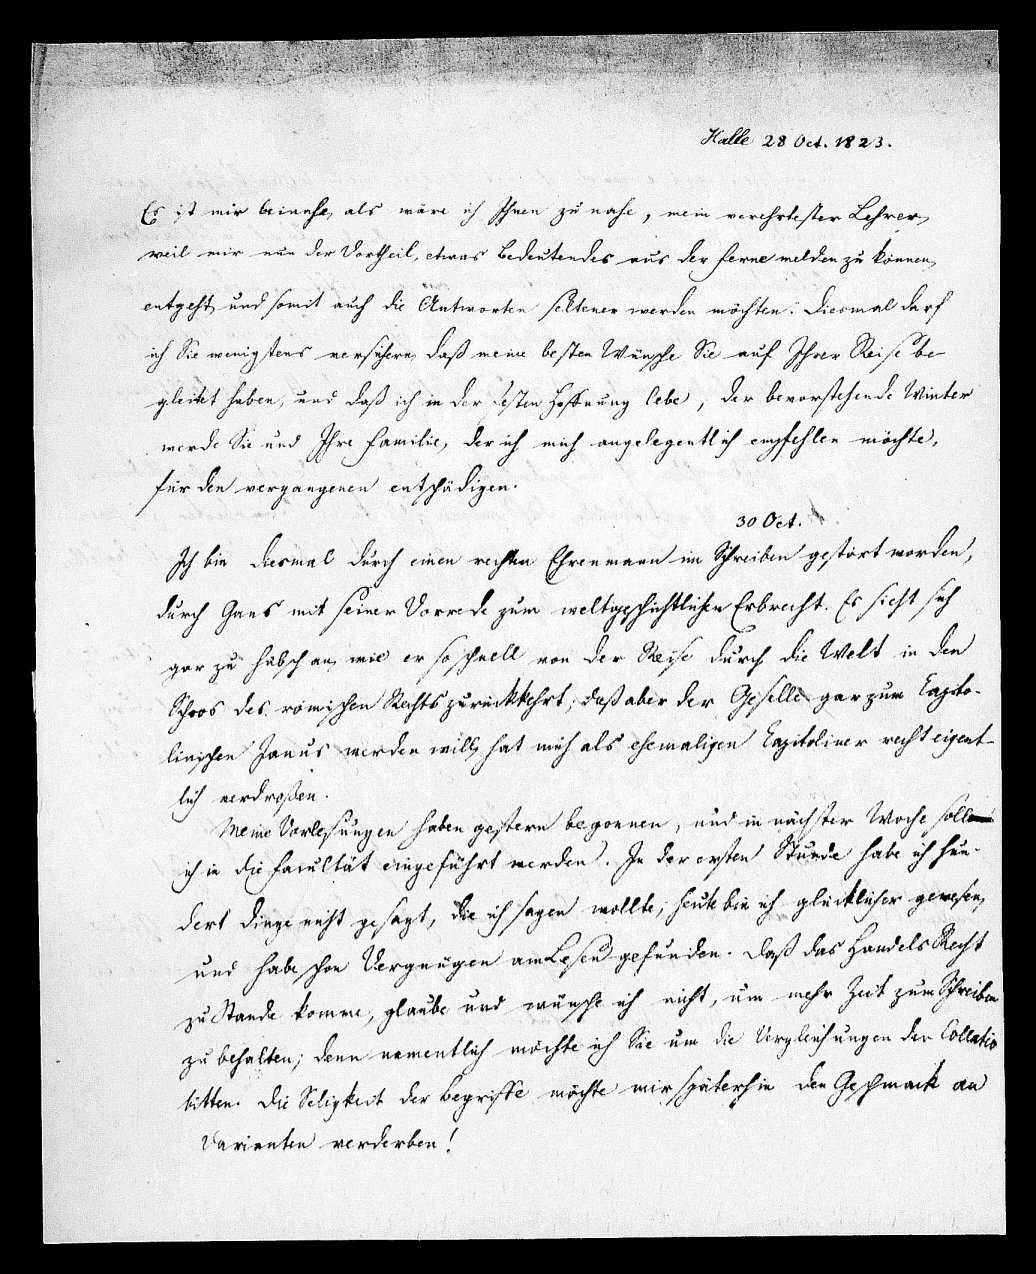 Halle 28 Oct. 1823.
Es ist mir beinahe, als wäre ich Ihnen zu nahe, mein verehrtester Lehrer,
weil mir nun der Vortheil, etwas Bedeutendes aus der Ferne melden zu können,
entgeht, und somit auch die Antworten seltener werden möchten. Diesmal darf
ich Sie wenigstens versichern, daß meine besten Wünsche Sie auf Ihrer Reise be-
gleitet haben, und daß ich in der festen Hoffnung lebe, der bevorstehende Winter
werde Sie und Ihre Familie, der ich mich angelegentlich empfehlen möchte,
für den vergangenen entschädigen.
30 Oct.
Ich bin diesmal durch einen rechten Ehrenmann im Schreiben gestört worden,
durch Gans mit seiner Vorrede zum weltgeschichtlichen Erbrecht. Es sieht sich
gar zu hübsch an, wie er so schnell von der Reise durch die Welt in den
Schoos des römischen Rechts zurückkehrt; daß aber der Geselle gar zum Capito-
linischen Janus werden will, hat mich als ehemaligen Capitoliner recht eigent-
lich verdroßen.
Meine Vorlesungen haben gestern begonnen, und in nächster Woche soll
ich in die Facultät eingeführt werden. In der ersten Stunde habe ich hun-
dert Dinge nicht gesagt, die ich sagen wollte; heute bin ich glücklicher gewesen,
und habe schon Vergnügen am Lesen gefunden. Daß das Handels Recht
zu Stande komme, glaube und wünsche ich nicht, um mehr Zeit zum Schreiben
zu behalten; denn namentlich möchte ich Sie um die Vergleichungen der Collatio
bitten. Die Seligkeit der Begriffe möchte mir späterhin den Geschmack an
Varianten verderben!